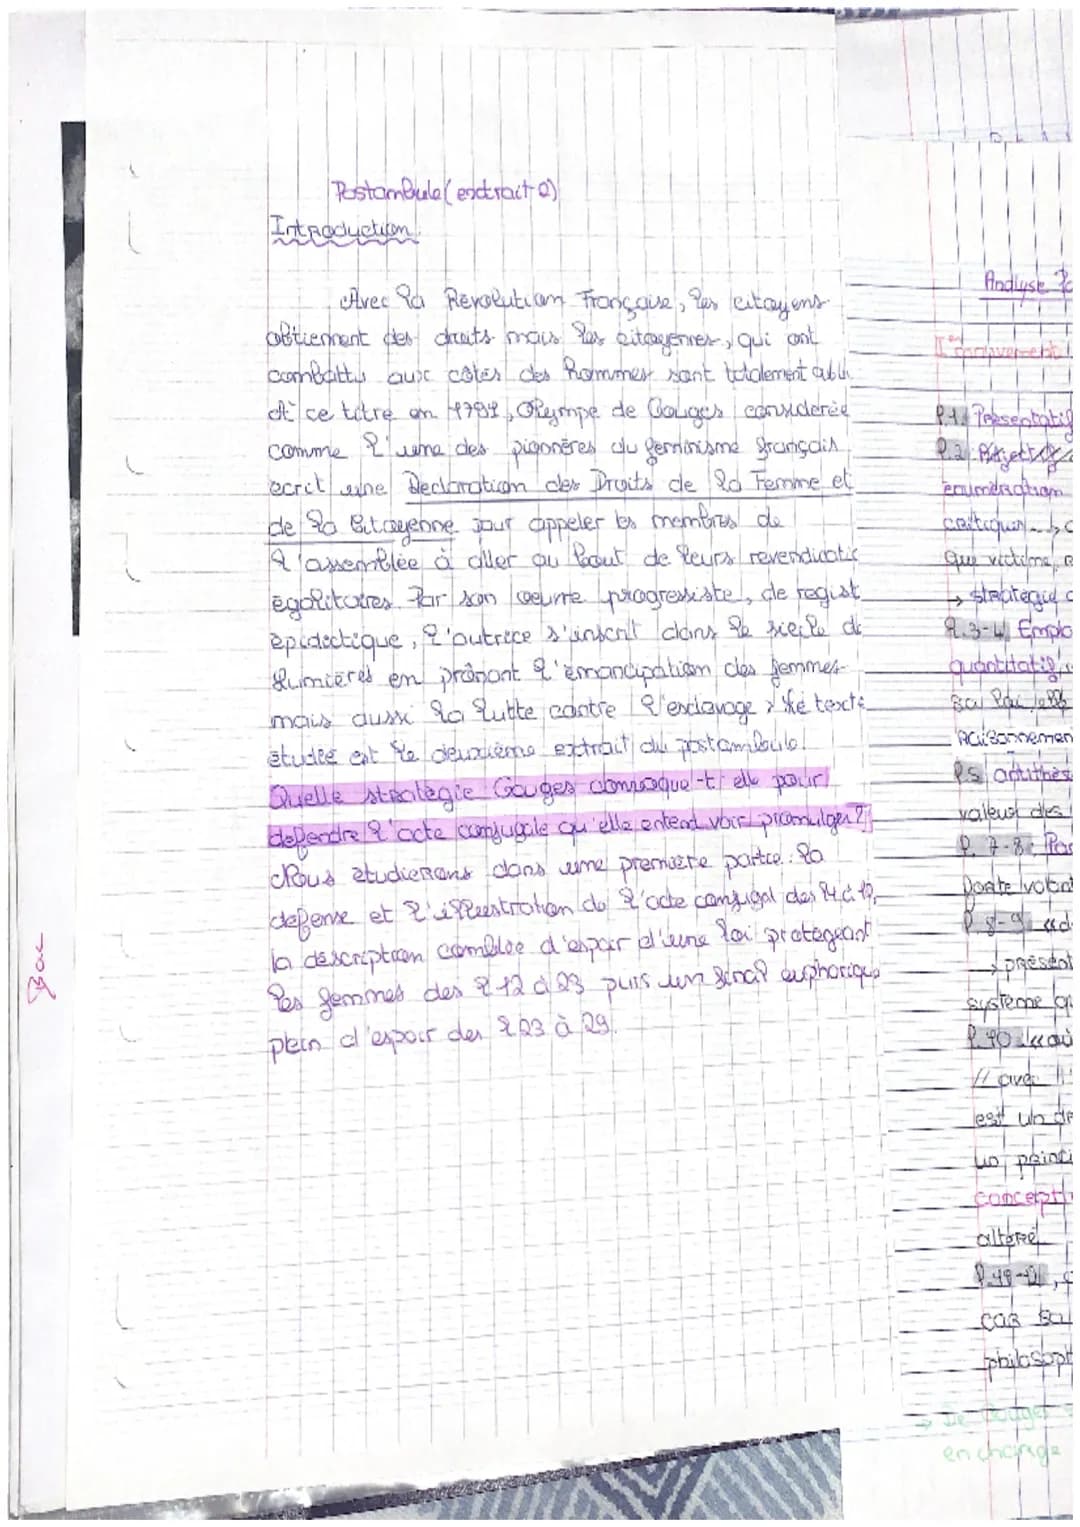 Postambule (extrait 2)
Introduction.
Avec la Révolution Française, les citoyens
obtiennent des droits mais les citoyennes, qui ont
combattu aux côtés des hommes sont totalement oubli
A ce titre en 1791, Olympe de Gouges considérée
comme l'une des pionnères du féminisme français
ecrit une Déclaration des Droits de la Femme et
de la Citoyenne pour appeler les membres de
l'assemblée à aller au bout de leurs revendicatio
égalitaires. Par son oeuvre progressiste, de regist
épidictique, l'autrice s'inscrit dans le siècle de
lumières en prônant l'émancipation des femmes
mais aussi la lutte contre l'esclavage. Le texte
étudié est le deuxième extrait du postambule.
Quelle stratégie Gouges convoque-t-elle pour
défendre l'acte conjugale qu'elle entend voir promulger?
Nous étudierons dans une première partie la
défense et l'illustration de l'acte conjugal des
la description comblée d'espoir d'une loi protégeant
les femmes des l 12 à 23 puis un final euphorique
plein d'espoir des l 23 à 29.
Bac
Analyse
mouvement
l.1 Présentatif
l.2
énumération
critiquer
que victime
→ stratégie
l.3-4 Emplo
quantitatif
sa loi
Raisonnemen
l.5 antithès
valeur des
l. 7-8: Par
Doate volont
l 8-9
→ présent
système qu
l.10 «où
// avec l'
est un dr
un princi
concepti
altéré
car sa
philosoph
→ De Gouges
en change